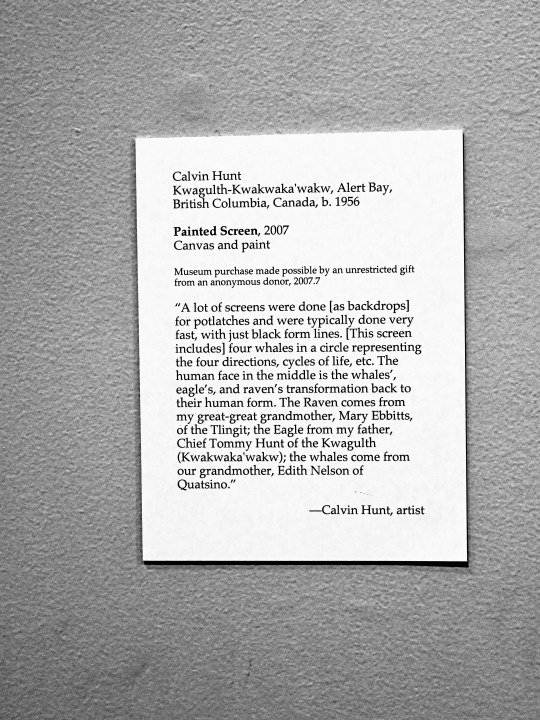 Calvin Hunt
Kwagulth-Kwakwaka'wakw, Alert Bay,
British Columbia, Canada, b. 1956
Painted Screen, 2007
Canvas and paint
Museum purchase made possible by an unrestricted gift
from an anonymous donor, 2007.7
“A lot of screens were done [as backdrops]
for potlatches and were typically done very
fast, with just black form lines. [This screen
includes] four whales in a circle representing
the four directions, cycles of life, etc. The
human face in the middle is the whales’,
eagle’s, and raven’s transformation back to
their human form. The Raven comes from
my great-great grandmother, Mary Ebbitts,
of the Tlingit; the Eagle from my father,
Chief Tommy Hunt of the Kwagulth
(Kwakwaka'wakw); the whales come from
our grandmother, Edith Nelson of
Quatsino.”
—Calvin Hunt, artist